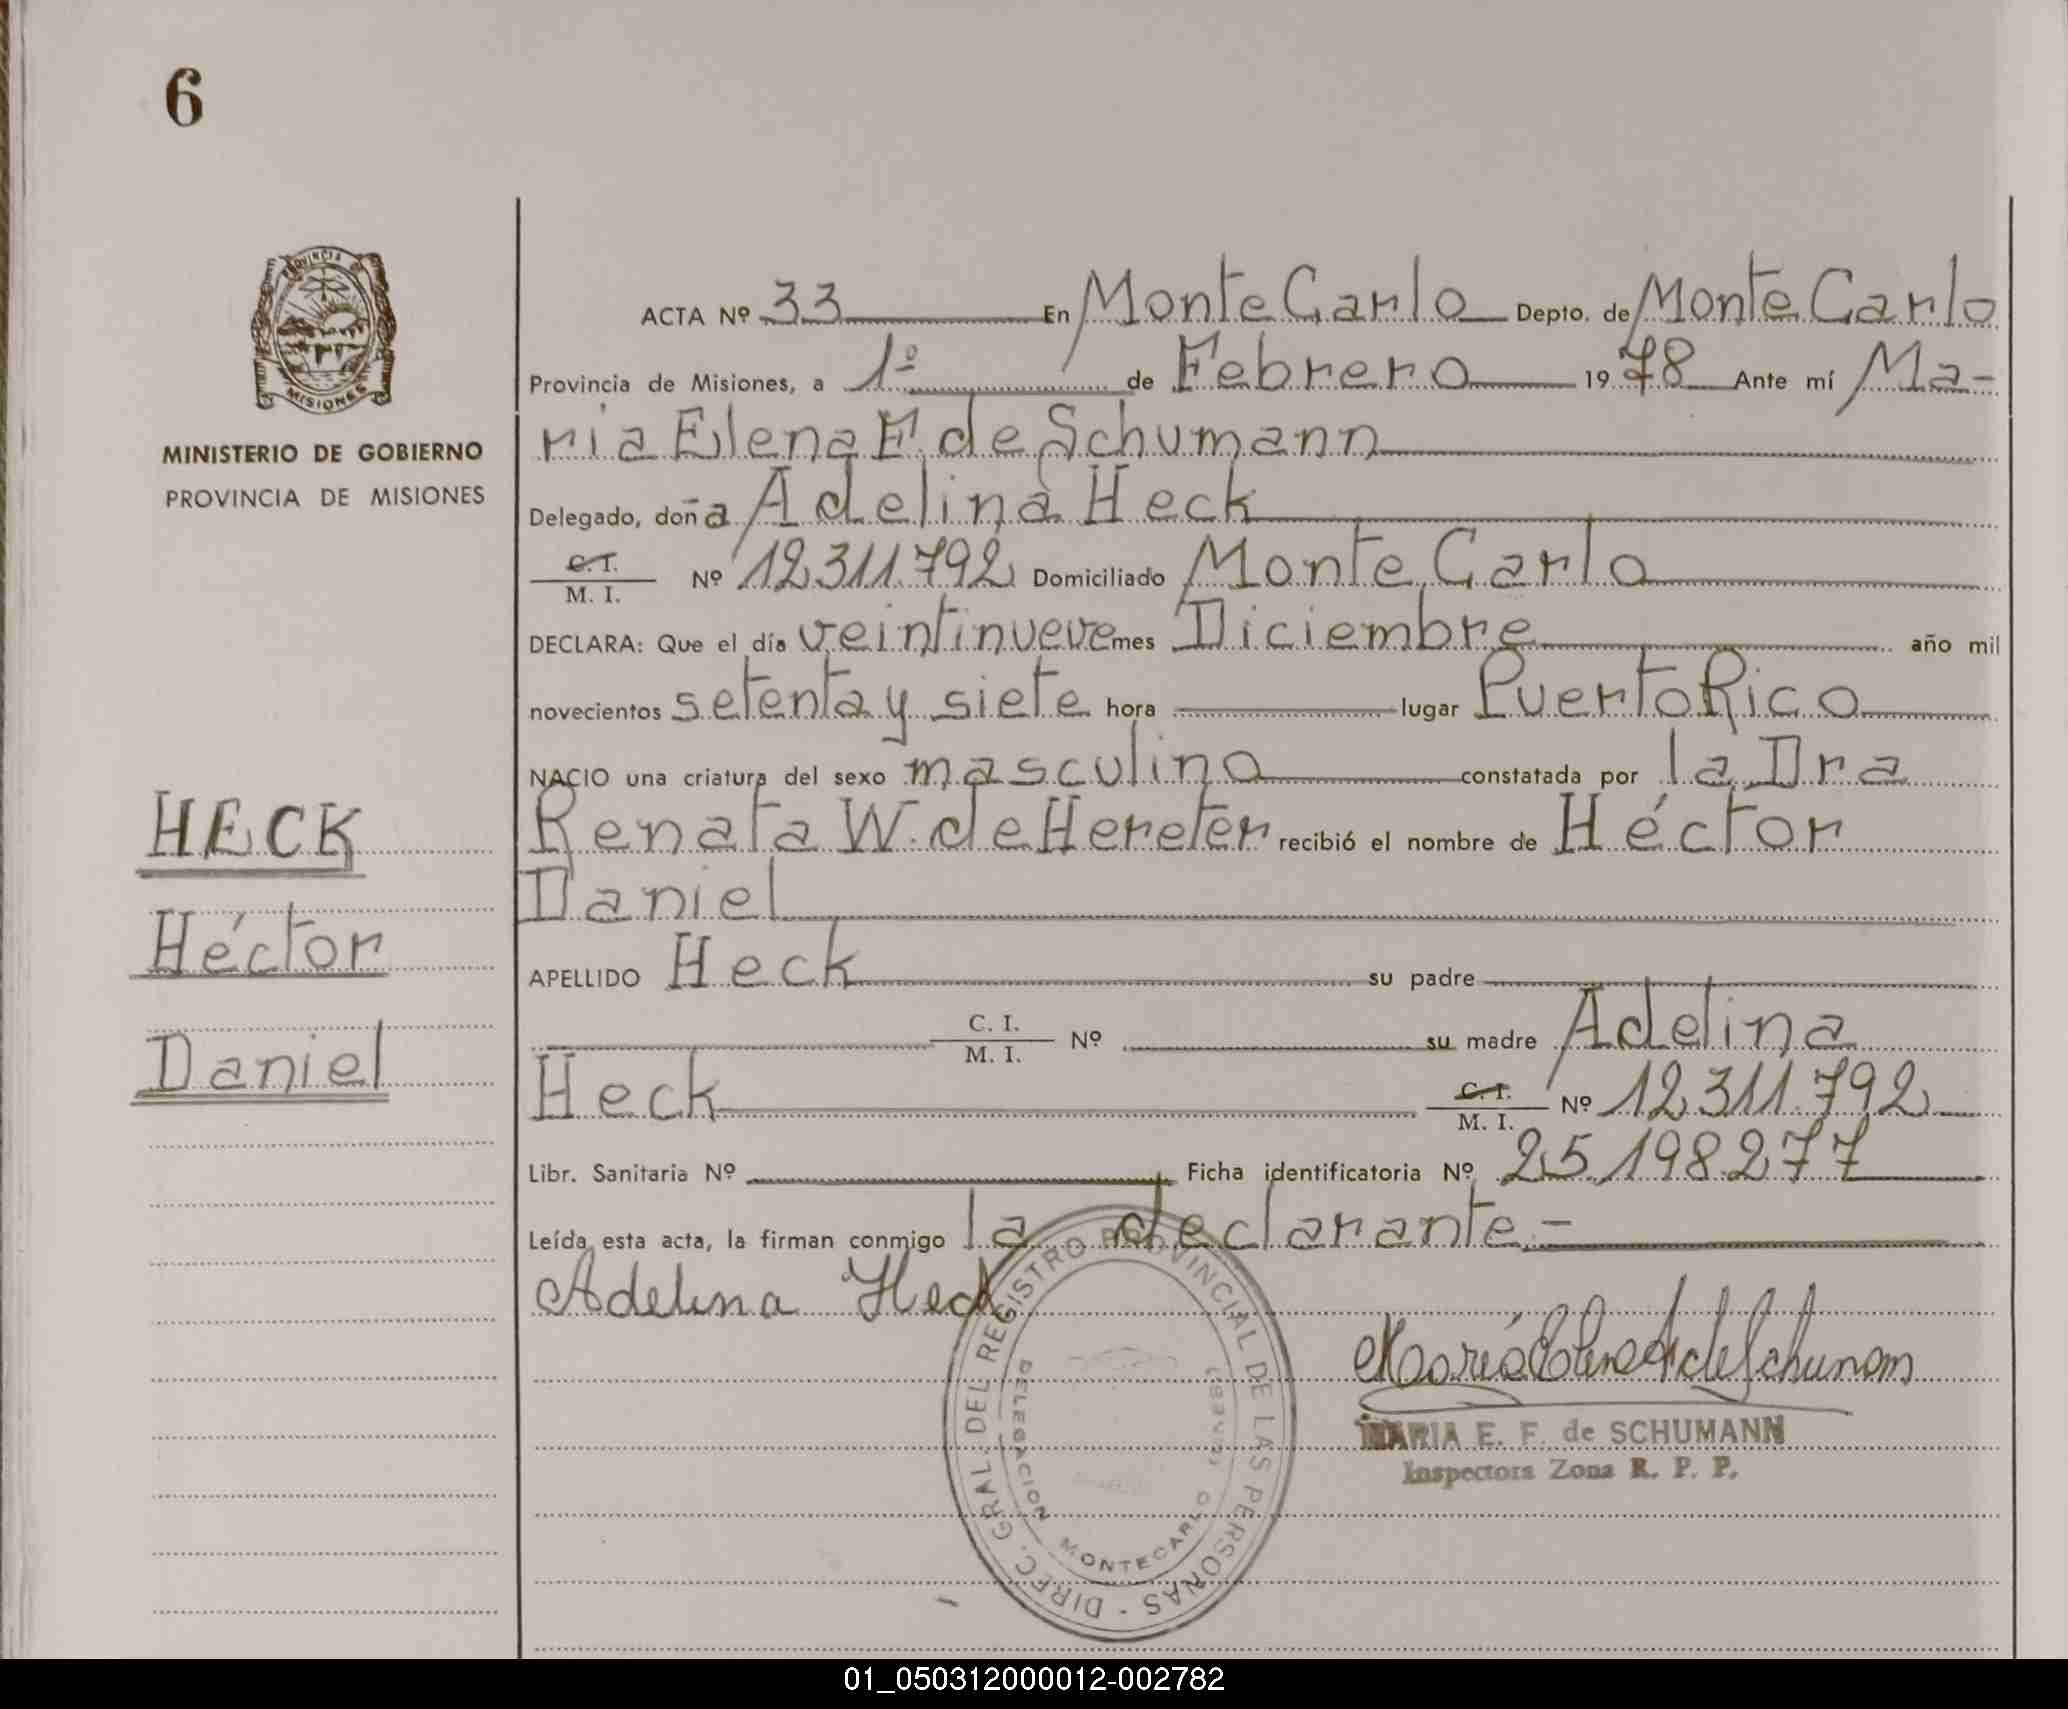 6
PROVINCIA DE
MISIONES
MINISTERIO DE GOBIERNO
PROVINCIA DE MISIONES
HECK
Héctor
Daniel
ACTA Nº 33 En Monte Carlo Depto. de Monte Carlo
Provincia de Misiones, a 1º de Febrero 1978 Ante mí Ma-
ria Elena F. de Schumann
Delegado, doña Adelina Heck
C. I. / M. I. Nº 12311.792 Domiciliado Monte Carlo
DECLARA: Que el día veintinueve mes Diciembre año mil
novecientos setenta y siete hora lugar Puerto Rico
NACIO una criatura del sexo masculino constatada por la Dra
Renata W. de Hereter recibió el nombre de Héctor
Daniel
APELLIDO Heck su padre
C. I. / M. I. Nº su madre Adelina
Heck C. I. / M. I. Nº 12311.792
Libr. Sanitaria Nº Ficha identificatoria Nº 25.198.277
Leída esta acta, la firman conmigo la declarante.-
Adelina Heck
María Elena F de Schumann
MARIA E. F. de SCHUMANN
Inspectora Zona R. P. P.
DIREC. GRAL. DEL REGISTRO PROVINCIAL DE LAS PERSONAS -
DELEGACION MONTECARLO
01_050312000012-002782